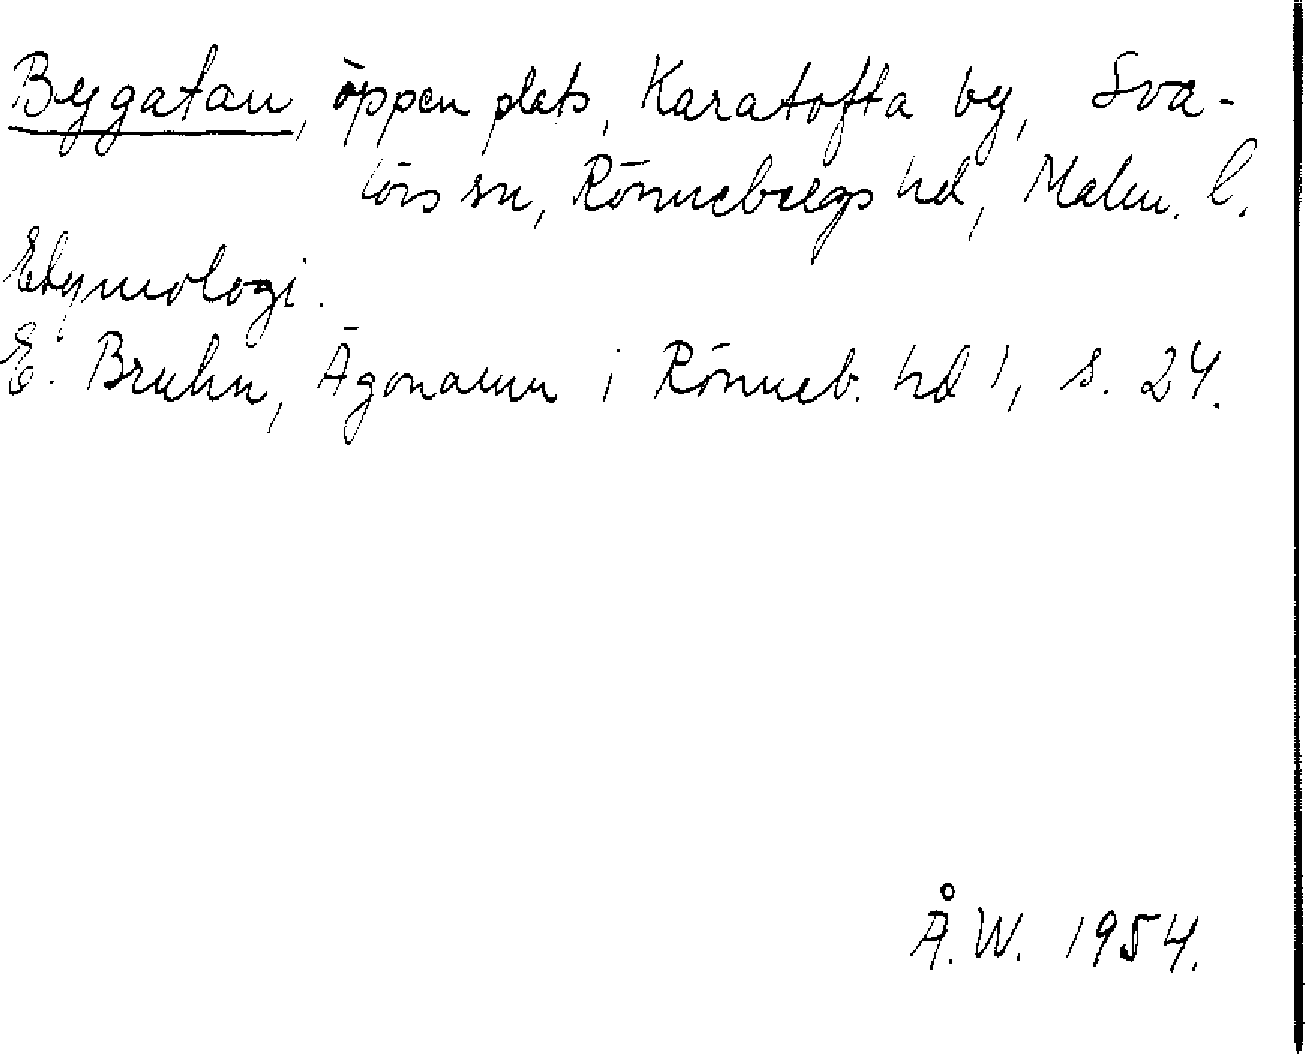 Bygatan, öppen plats, Karatofta by, Sva-
lövs sn, Rönnebergs hd, Malm. l.
Etymologi.
E. Bruhn, Ägonamn i Rönneb. hd 1, s. 24.
Å. W. 1954.